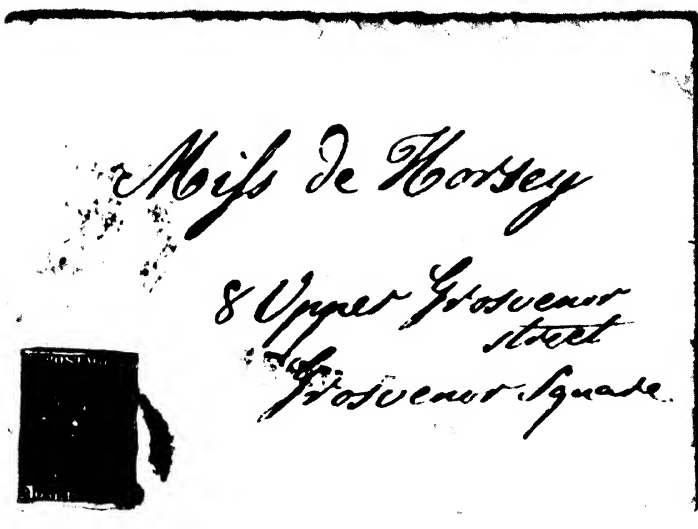 Miſs de Horsey
8 Upper Grosvenor
street
Grosvenor Square
POSTAGE